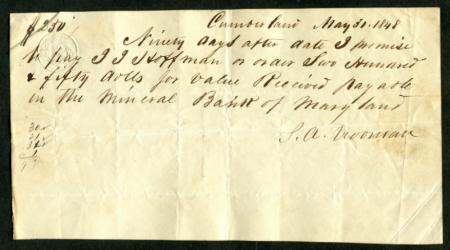 $250 Cumberland May 31. 1848
Ninety days after date I promise
to pay J J Hoffman or order Two Hundred
& fifty dolls for value Received payable
in the Mineral Bank of Maryland
S. A. Vrooman
30
31